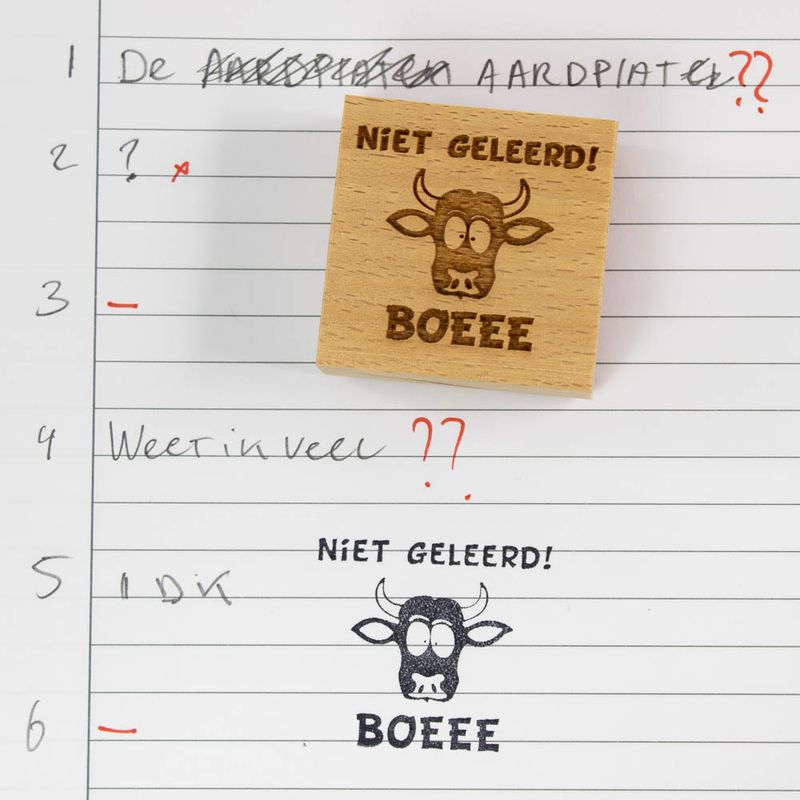 1 De AARDPLATEN AARDPLATEN ??
2 ? x
NiET GELEERD!
BOEEE
3 —
4 Weet ik veel ??
NiET GELEERD!
5 IDK
BOEEE
6 —